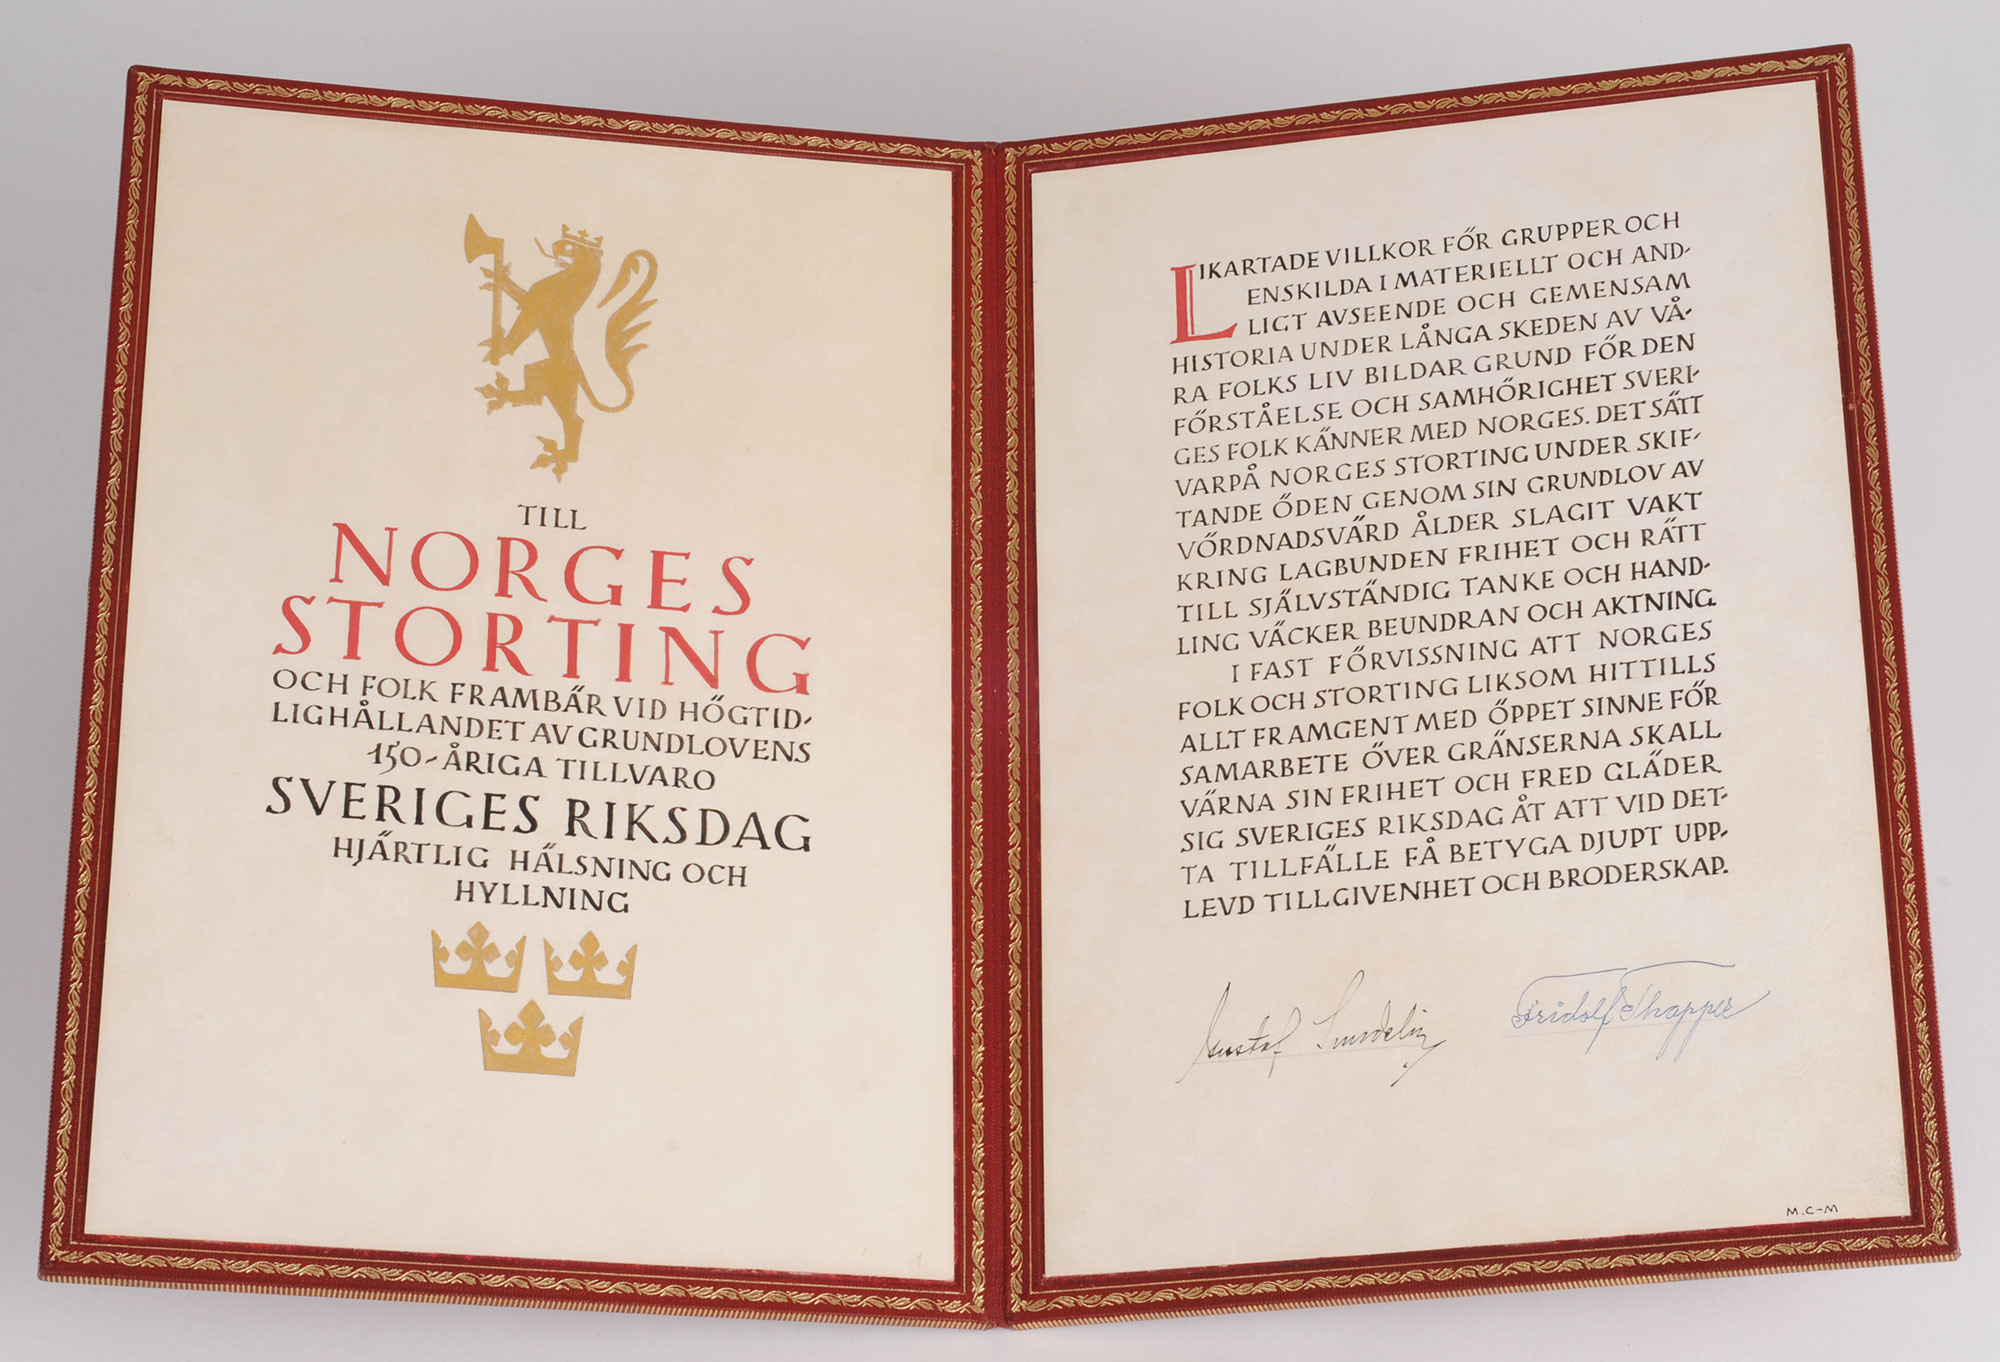 TILL
NORGES
STORTING
OCH FOLK FRAMBÄR VID HÖGTID-
LIGHÅLLANDET AV GRUNDLOVENS
150-ÅRIGA TILLVARO
SVERIGES RIKSDAG
HJÄRTLIG HÄLSNING OCH
HYLLNING
LIKARTADE VILLKOR FÖR GRUPPER OCH
ENSKILDA I MATERIELLT OCH AND-
LIGT AVSEENDE OCH GEMENSAM
HISTORIA UNDER LÅNGA SKEDEN AV VÅ-
RA FOLKS LIV BILDAR GRUND FÖR DEN
FÖRSTÅELSE OCH SAMHÖRIGHET SVERI-
GES FOLK KÄNNER MED NORGES. DET SÄTT
VARPÅ NORGES STORTING UNDER SKIF-
TANDE ÖDEN GENOM SIN GRUNDLOV AV
VÖRDNADSVÄRD ÅLDER SLAGIT VAKT
KRING LAGBUNDEN FRIHET OCH RÄTT
TILL SJÄLVSTÄNDIG TANKE OCH HAND-
LING VÄCKER BEUNDRAN OCH AKTNING.
I FAST FÖRVISSNING ATT NORGES
FOLK OCH STORTING LIKSOM HITTILLS
ALLT FRAMGENT MED ÖPPET SINNE FÖR
SAMARBETE ÖVER GRÄNSERNA SKALL
VÄRNA SIN FRIHET OCH FRED GLÄDER
SIG SVERIGES RIKSDAG ÅT ATT VID DET-
TA TILLFÄLLE FÅ BETYGA DJUPT UPP-
LEVD TILLGIVENHET OCH BRODERSKAP.
Gustaf Sundelin
Fridolf Thapper
M.C-M